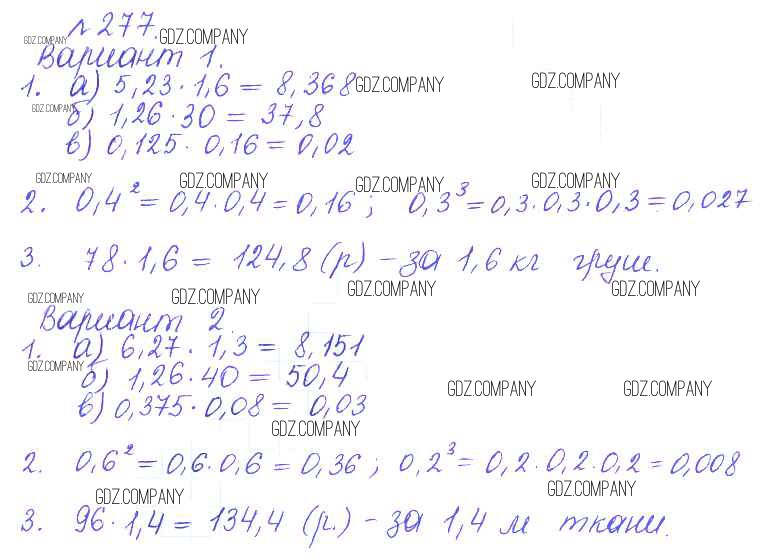 № 277.
GDZ.COMPANY GDZ.COMPANY
Вариант 1.
1. а) 5,23 · 1,6 = 8,368
GDZ.COMPANY GDZ.COMPANY
GDZ.COMPANY
б) 1,26 · 30 = 37,8
в) 0,125 · 0,16 = 0,02
GDZ.COMPANY GDZ.COMPANY GDZ.COMPANY GDZ.COMPANY
2. 0,4² = 0,4 · 0,4 = 0,16 ; 0,3³ = 0,3 · 0,3 · 0,3 = 0,027
3. 78 · 1,6 = 124,8 (р) – за 1,6 кг груш.
GDZ.COMPANY GDZ.COMPANY GDZ.COMPANY GDZ.COMPANY
Вариант 2.
1. а) 6,27 · 1,3 = 8,151
GDZ.COMPANY
б) 1,26 · 40 = 50,4
GDZ.COMPANY GDZ.COMPANY
в) 0,375 · 0,08 = 0,03
GDZ.COMPANY
2. 0,6² = 0,6 · 0,6 = 0,36 ; 0,2³ = 0,2 · 0,2 · 0,2 = 0,008
GDZ.COMPANY GDZ.COMPANY
3. 96 · 1,4 = 134,4 (р.) – за 1,4 м ткани.